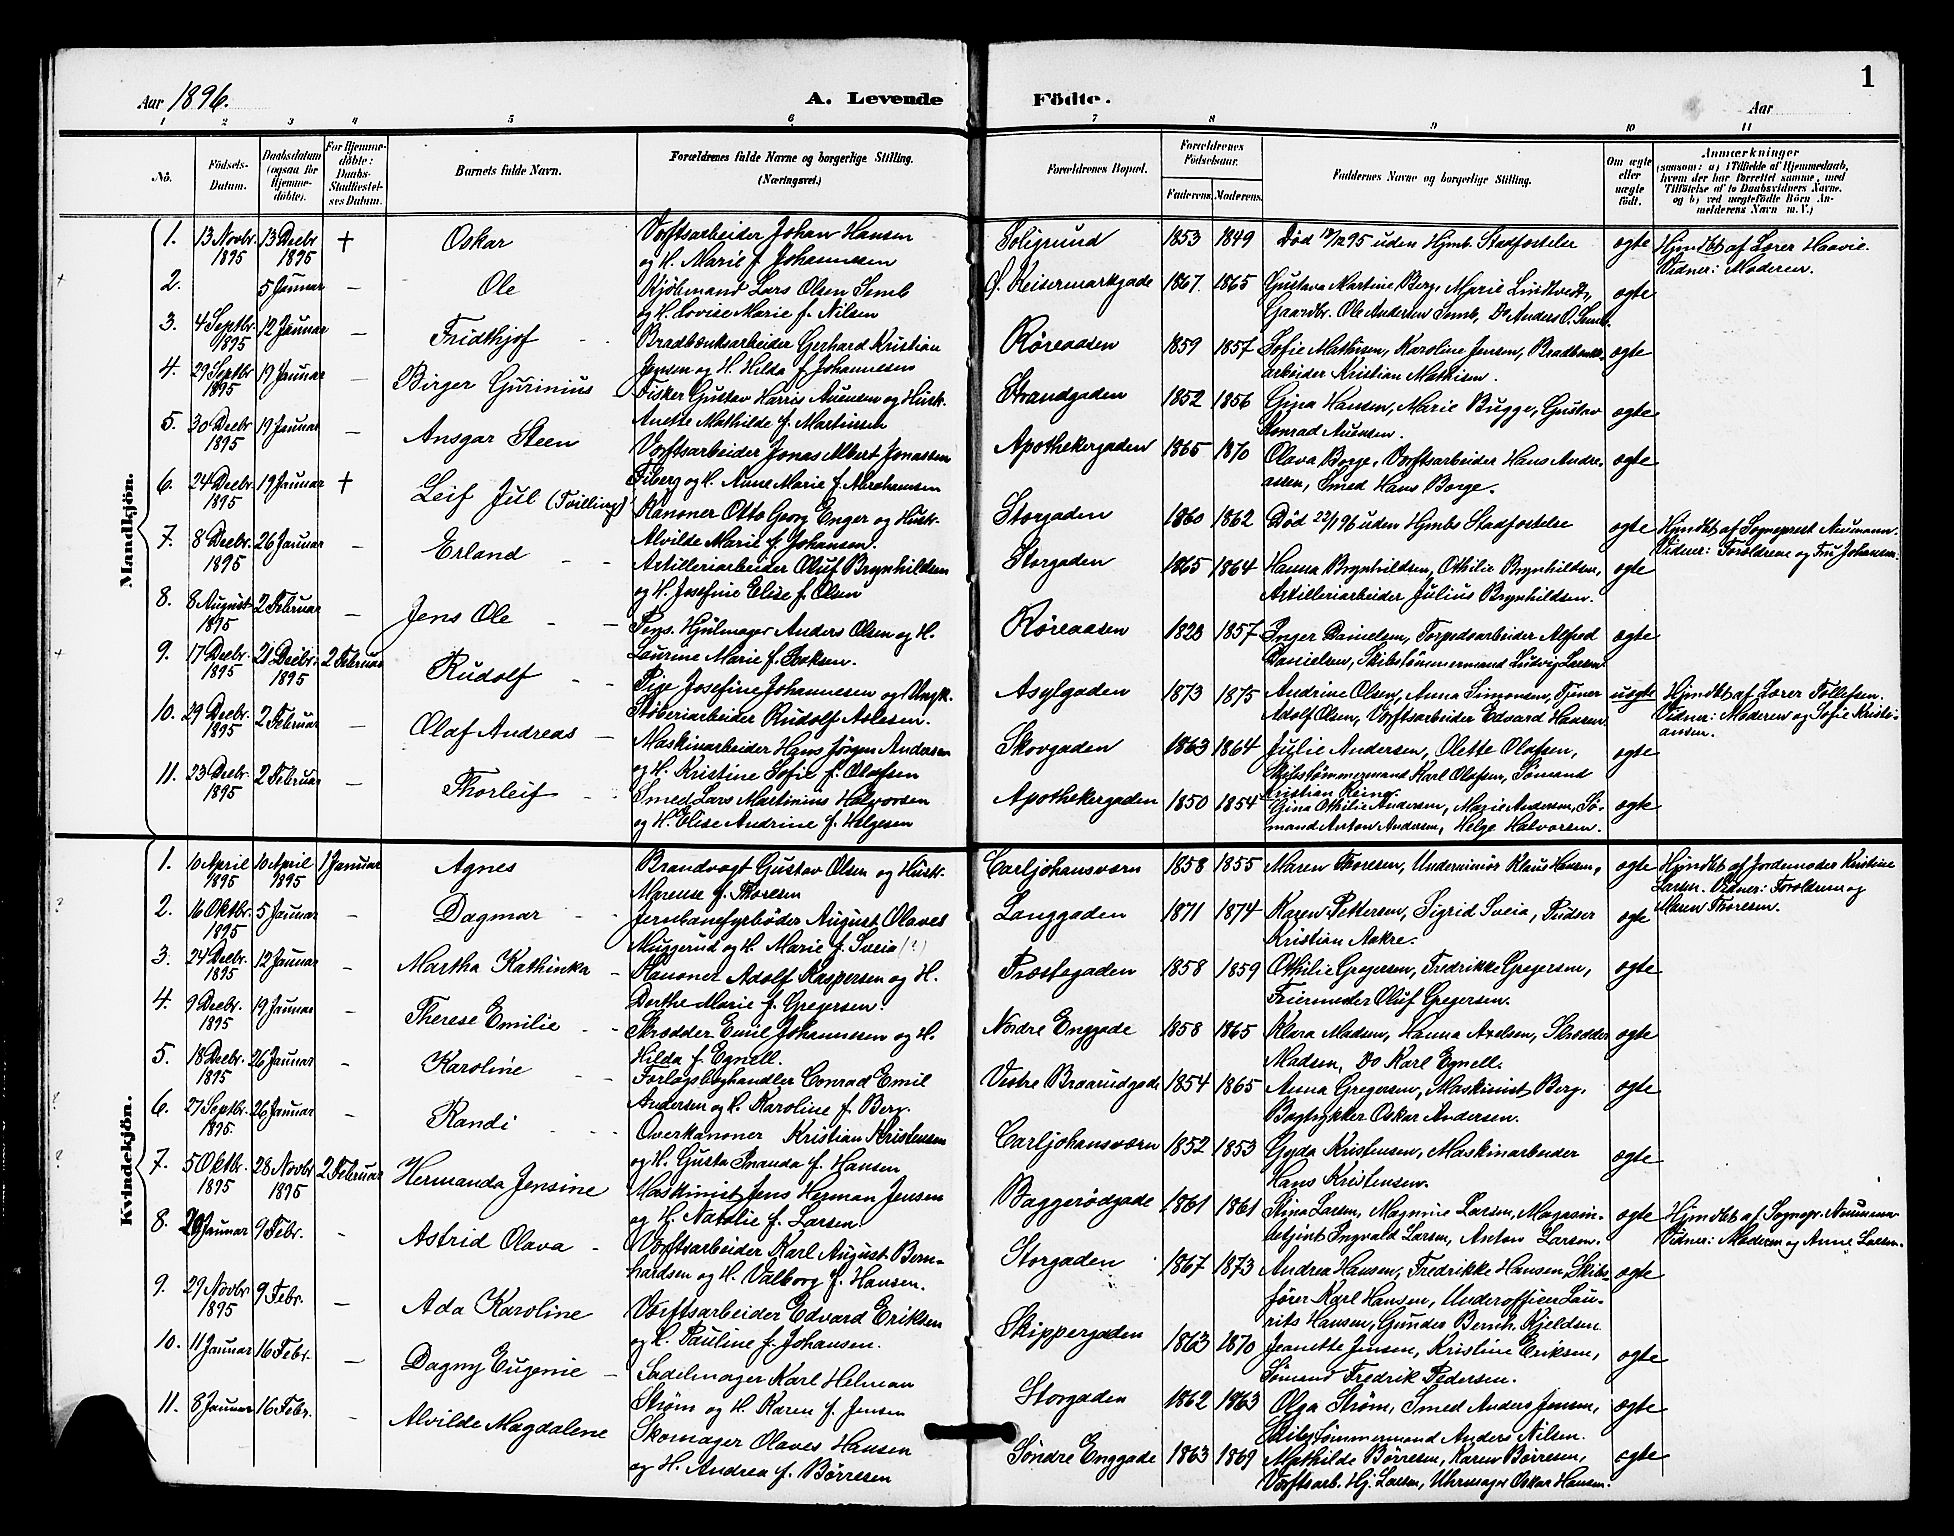 1
Aar 1896.
A. Levende
Födte.
Aar
1 2 3 4 5 6 7 8 9 10 11
No.
Födsels-Datum.
Daabsdatum (ogsaa for Hjemmedöbte).
For Hjemmedöbte: Daabs-Stadfæstelses Datum.
Barnets fulde Navn.
Forældrenes fulde Navne og borgerlige Stilling. (Næringsvei.)
Forældrenes Bopæl.
Forældrenes Födselsaar.
Faderens. Moderens.
Faddernes Navne og borgerlige Stilling.
Om ægte eller uægte födt.
Anmærkninger
(saasom: a) i Tilfælde af Hjemmedaab, hvem der har forrettet samme, med Tilföielse af to Daabsvidners Navne, og b) ved uægtefödte Börn Anmelderens Navn m. V.)
Mandkjön.
1. 13 Novbr. 1895 13 Decbr 1895 + Oskar
Værftsarbeider Johan Hansen
og H. Marie f. Johannesen
Soligrund 1853 1849 Død 17/12 95 uden Hjmb. Stadfæstelse ægte
Hjmdbt af Lærer Haavie.
Vidner: Moderen.
2. 5 Januar - Ole
Kjøbmand Lars Olsen Semb
og H. Lovise Marie f. Nilsen
Ø. Keisermarkgade 1867 1865 Gustava Martine Berg, Marie Lindtvedt,
Gaardbr. Ole Andersen Semb, Do Anders O. Semb. ægte
3. 4 Septbr. 1895 12 Januar - Fridthjof
Bradbænksarbeider Gerhard Kristian
Jensen og H. Hilda f. Johannesen
Røreaasen 1859 1857 Sofie Mathisen, Karoline Jensen, Bradbænks-
arbeider Kristian Mathisen. ægte
4. 29 Septbr 1895 19 Januar - Birger Gurinius
Fisker Gustav Harris Auensen og Hustr.
Anette Mathilde f. Martinsen
Strandgaden 1852 1856 Gina Hansen, Marie Bugge, Gustav
Konrad Auensen. ægte
5. 30 Decbr 1895 19 Januar - Ansgar Steen
Værftsarbeider Jonas Albert Jonassen
Fiberg og H. Anne Marie f. Abrahamsen
Apothekergaden 1865 1870 Olava Borge, Værftsarbeider Hans Andre-
assen, Smed Hans Borge. ægte
6. 24 Decbr. 1895 19 Januar + Leif Jul (Tvilling)
Kanoner Otto Georg Enger og Hustr.
Alvilde Marie f. Johansen.
Storgaden 1860 1862 Død 22/1 96 uden Hjmbs Stadfæstelse ægte
Hjmdbt af Sogneprest Aumann.
Vidner: Forældrene og Fru Johansen.
7. 8 Decbr. 1895 26 Januar - Erland
Artilleriarbeider Oluf Brynhildsen
og H. Josefine Elise f. Olsen
Storgaden 1865 1864 Hanna Brynhildsen, Othilie Brynhildsen,
Artilleriarbeider Julius Brynhildsen. ægte
8. 8 August 1895 2 Februar - Jens Ole
Pens. Hjulmager Anders Olsen og H.
Laurine Marie f. Isaksen.
Røreaasen 1823 1857 Inger Danielsen, Torpedoarbeider Alfred
Danielsen, Skibstømmermand Ludvig Larsen ægte
9. 17 Decbr. 1895 21 Decbr. 1895 2 Februar Rudolf
Pige Josefine Johannesen og Ungk.
Støberiarbeider Rudolf Aslesen.
Asylgaden 1873 1875 Andrine Olsen, Anna Simonsen, Tjener
Adolf Olsen, Værftsarbeider Edvard Hansen uægte
Hjmdbt af Lærer Tollefsen.
Vidner: Moderen og Sofie Kristi-
ansen.
10. 29 Decbr. 1895 2 Februar - Olaf Andreas
Maskinarbeider Hans Jørgen Andersen
og H. Kristine Sofie f. Olafsen
Skovgaden 1863 1864 Julie Andersen, Olette Olafsen,
Skibstømmermand Karl Olafsen, Sømand
Kristian Reine. ægte
11. 23 Decbr. 1895 2 Februar - Thorleif
Smed Lars Martinius Halvorsen
og H. Elise Andrine f. Helgesen
Apothekergaden 1850 1854 Gina Othilie Andersen, Marie Andersen, Sø-
mand Anton Andersen, Helge Halvorsen. ægte
Kvindekjön.
1. 10 April 1895 10 April 1895 1 Januar Agnes
Brandvagt Gustav Olsen og Hustr.
Marense f. Thoresen
Carljohansværn 1858 1855 Maren Thoresen, Underminør Klaus Hansen, ægte
Hjmdbt af Jordemoder Kristine
Larsen. Vidner: Forældrene og
Maren Thoresen.
2. 16 Oktbr. 1895 5 Januar - Dagmar
Jernbanefyrbøder August Olaves
Muggerud og H. Marie f. Sveia (?)
Langgaden 1871 1874 Karen Pettersen, Sigrid Sveia, Pudser
Kristian Aakre. ægte
3. 24 Decbr. 1895 12 Januar - Martha Kathinka
Kanoner Adolf Kaspersen og H.
Dorthe Marie f. Gregersen.
Præstegaden 1858 1859 Othilie Gregersen, Fredrikke Gregersen,
Feiermester Oluf Gregersen. ægte
4. 9 Decbr. 1895 19 Januar - Therese Emilie
Skrædder Emil Johannesen og H.
Hilda f. Egnell.
Nordre Enggade 1858 1865 Klara Madsen, Hanna Axelsen, Skrædder
Madsen, Do Karl Egnell. ægte
5. 18 Decbr. 1895 26 Januar - Karoline
Forlagsboghandler Conrad Emil
Andersen og H. Karoline f. Berg.
Vestre Braarudgade 1854 1865 Anna Gregersen, Maskinist Berg,
Bogtrykker Oskar Andersen. ægte
6. 27 Septbr. 1895. 26 Januar - Randi
Overkanoner Kristian Kristensen
og H. Gusta Smanda f. Hansen
Carljohansværn 1852 1853 Gyda Kristensen, Maskinarbeider
Hans Kristensen. ægte
7. 5 Oktbr. 1895 28 Novbr 1895 2 Februar Hermanda Jensine
Maskinist Jens Herman Jensen
og H. Natalie f. Larsen.
Baggerødgade 1861 1861 Stina Larsen, Magnine Larsen, Magasin-
betjent Ingvald Larsen, Anton Larsen. ægte
Hjmdbt af Sognepr. Aumann
Vidner: Moderen og Anne Larsen.
8. 20 Januar 9 Febr. - Astrid Olava
Værftsarbeider Karl August Bern-
hardsen og H. Valborg f. Hansen.
Storgaden 1867 1873 Andrea Hansen, Fredrikke Hansen, Skibs-
fører Karl Hansen, Underofficer Lau-
rits Hansen, Gunder Bernh. Kjeldsen ægte
9. 29 Novbr 1895 9 Febr. - Ada Karoline
Værftsarbeider Edvard Eriksen
og H. Pauline f. Johansen.
Skippergaden 1863 1870 Jeanette Jensen, Kristine Eriksen,
Sømand Fredrik Pedersen. ægte
10. 11 Januar 16 Febr. - Dagny Eugenie
Sadelmager Karl Helman
Strøm og H. Karen f. Jensen
Storgaden 1862 1863 Olga Strøm, Smed Anders Jensen,
Skibstømmermand Anders Nilsen. ægte
11. 8 Januar 16 Febr. - Alvilde Magdalene
Skomager Olaves Hansen
og H. Andrea f. Børresen
Søndre Enggade 1863 1869 Mathilde Børresen, Karen Børresen,
Værftsarb. Hj. Larsen, Uhrmager Oskar Hansen. ægte